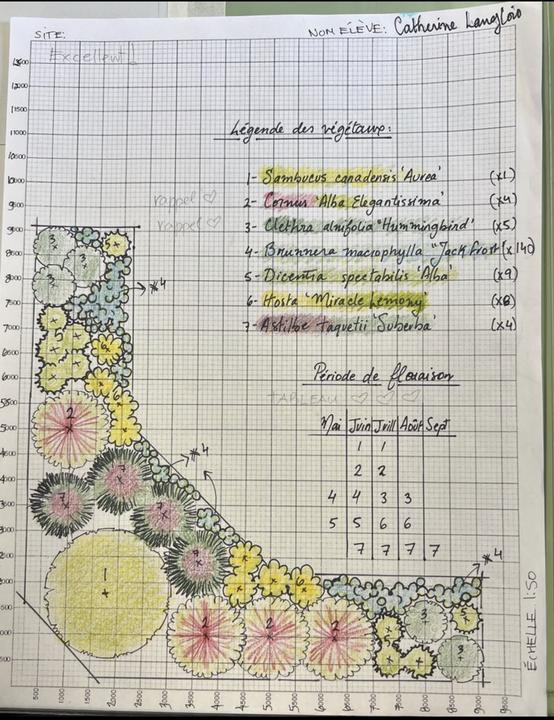 SITE:
NOM ÉLÈVE: Catherine Langlois
Excellent!
Légende des végétaux:
1- Sambucus canadensis 'Aurea' (x1)
2- Cornus 'Alba Elegantissima' (x4)
rappel ♡
3- Clethra alnifolia "Hummingbird" (x5)
rappel ♡
4- Brunnera macrophylla "Jack frost" (x140)
5- Dicentra spectabilis 'Alba' (x9)
6- Hosta 'Miracle Lemony' (x8)
7- Astilbe taquetii 'Suberba' (x4)
Période de floraison
TABLEAU ♡ ♡ ♡
Mai Juin Juill Août Sept
1 1
2 2
4 4 3 3
5 5 6 6
7 7 7 7
*4
*4
*4
3 3 3 5
5 6 6 6
2
7 7 7 7
1
2 2 2
6
5 3 5 3
ÉCHELLE 1:50
13500
13000
11500
11000
10500
10000
9500
9000
8500
8000
7500
7000
6500
6000
5500
5000
4500
4000
3500
3000
500 1000 1500 2000 2500 3000 3500 4000 4500 5000 5500 6000 6500 7000 7500 8000 8500 9000 9500